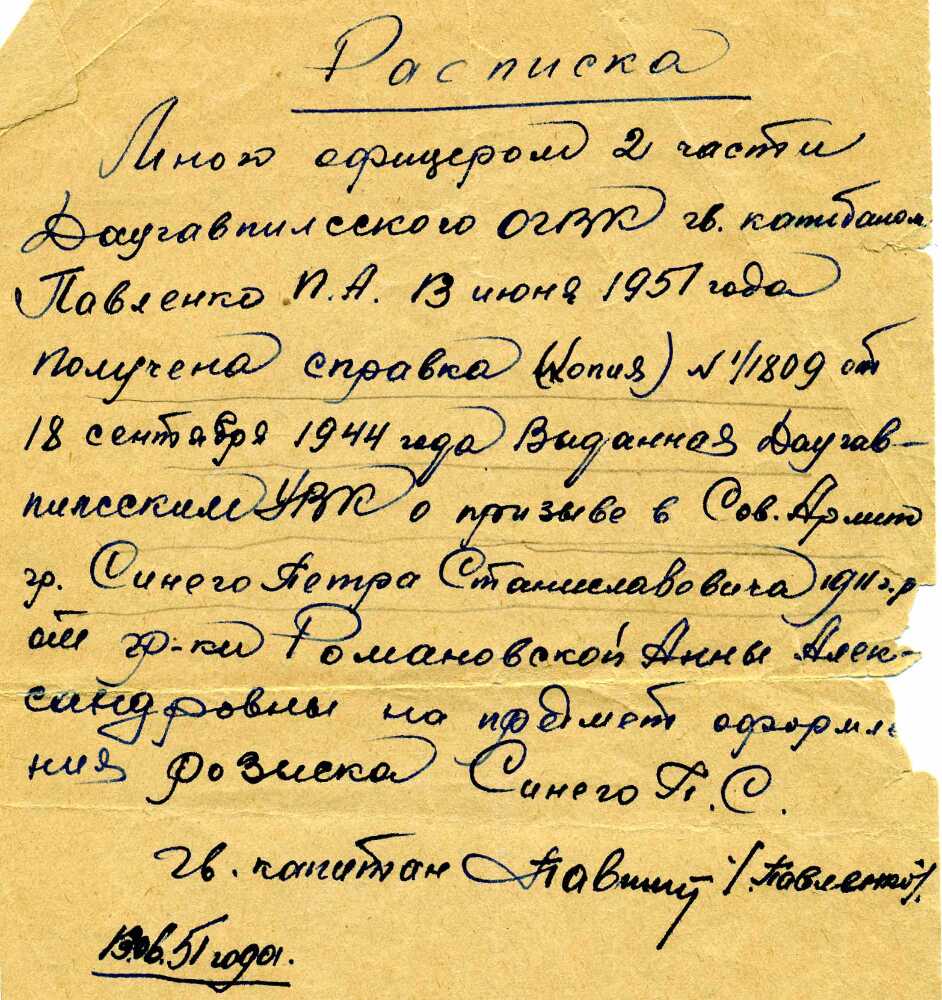 Расписка
Мною офицером 2 части
Даугавпилсского ОГВК гв. капитаном
Павленко П.А. 13 июня 1951 года
получена справка (копия) N 1/1809 от
18 сентября 1944 года Выданная Даугав-
пилсским УВК о призыве в Сов. Армию
гр. Синего Петра Станиславовича 1911 г.р
от гр-ки Романовской Анны Алек-
сандровны на предмет оформле
ния розыска Синего П.С.
Гв. капитан /Павленко/.
13.06.51 года.